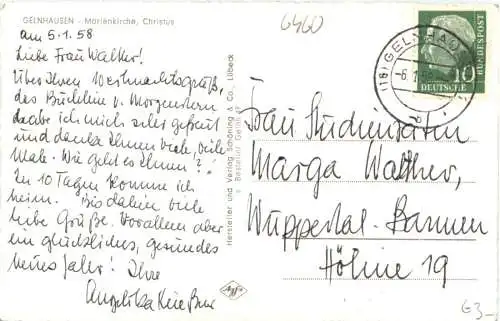 GELNHAUSEN - Marienkirche, Christus
6460
am 5.1.58
Liebe Frau Walter!
Über Ihren Weihnachtsgruß,
das Büchlein v. Morgenstern
habe ich mich sehr gefreut
und danke Ihnen viele, viele
Mal. Wie geht es Ihnen?
In 10 Tagen komme ich
heim. Bis dahin viele
liebe Grüße. Vor allem aber
ein glückliches, gesundes
neues Jahr! Ihre
Angelika
Hersteller und Verlag Schöning & Co., Lübeck
(16) GELNHAUSEN
-6.1.58
10
DEUTSCHE
BUNDESPOST
Frau Studienrätin
Marga Walther,
Wuppertal-Barmen
Höhne 19
€3-